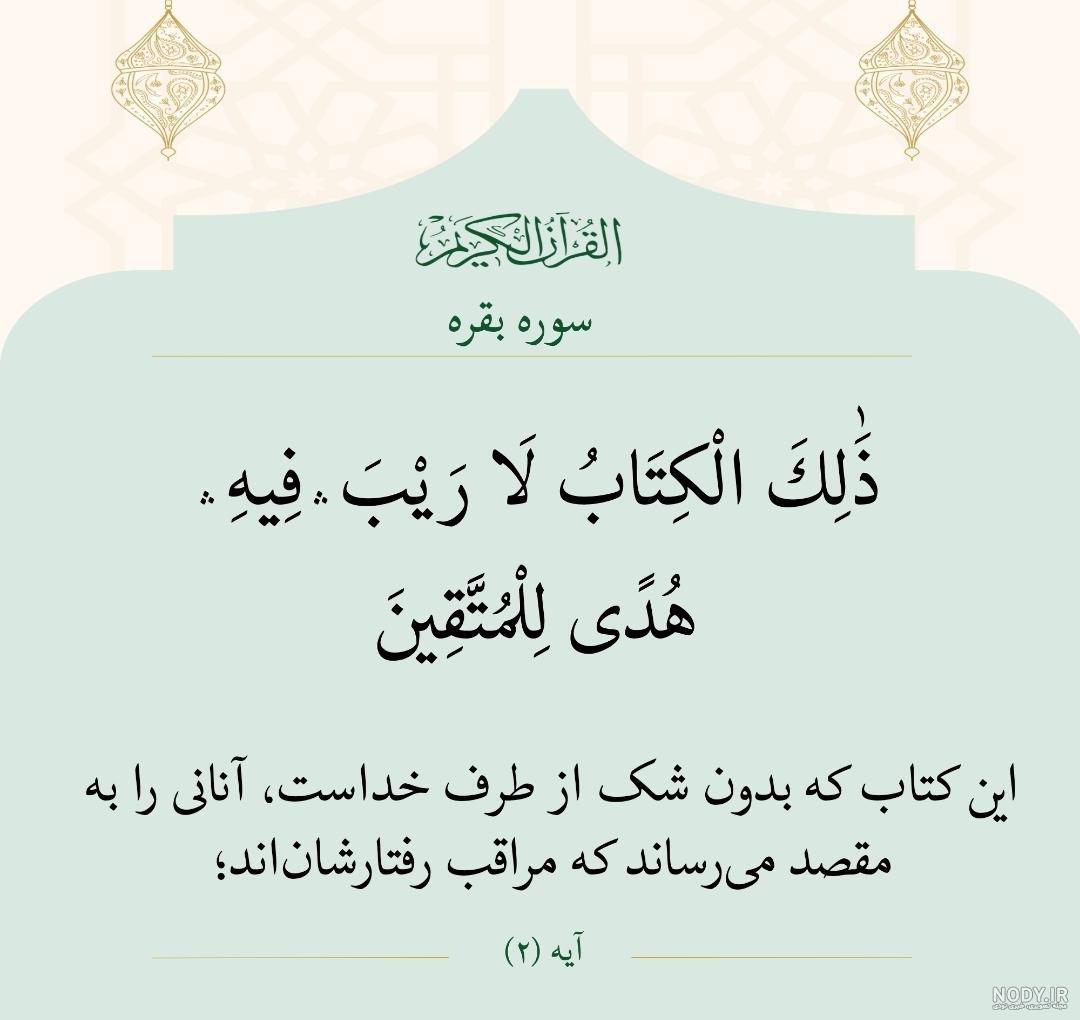 القرآن الكريم
سوره بقره
ذَٰلِكَ الْكِتَابُ لَا رَيْبَ ۛ فِيهِ ۛ
هُدًى لِلْمُتَّقِينَ
این کتاب که بدون شک از طرف خداست، آنانی را به
مقصد می‌رساند که مراقب رفتارشان‌اند؛
آیه (۲)
NODY.IR
مجله تصویری، خبری نودی